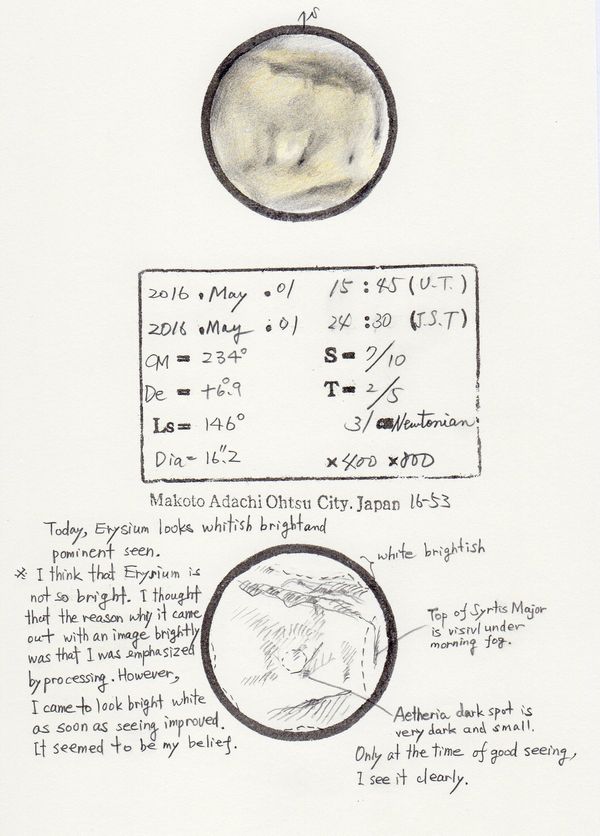 2016 . May . 01 15 : 45 (U.T.)
2016 . May . 01 24 : 30 (J.S.T)
CM = 234° S = 7/10
De = +6.°9 T = 2/5
Ls = 146° 31 Newtonian
Dia = 16".2 ×400 ×800
Makoto Adachi Ohtsu City. Japan 16-53
Today, Erysium looks whitish bright and
pominent seen.
※ I think that Erysium is
not so bright. I thought
that the reason why it came
out with an image brightly
was that I was emphasized
by processing. However,
I came to look bright white
as soon as seeing improved.
It seemed to be my belief.
white brightish
Top of Syrtis Major
is visivl under
morning fog.
Aetheria dark spot is
very dark and small.
Only at the time of good seeing,
I see it clearly.